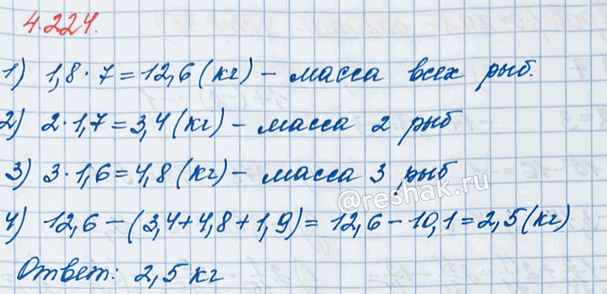 4.224.
1) 1,8 · 7 = 12,6 (кг) – масса всех рыб.
2) 2 · 1,7 = 3,4 (кг) – масса 2 рыб
3) 3 · 1,6 = 4,8 (кг) – масса 3 рыб
@reshak.ru
4) 12,6 – (3,4 + 4,8 + 1,9) = 12,6 – 10,1 = 2,5 (кг)
Ответ: 2,5 кг